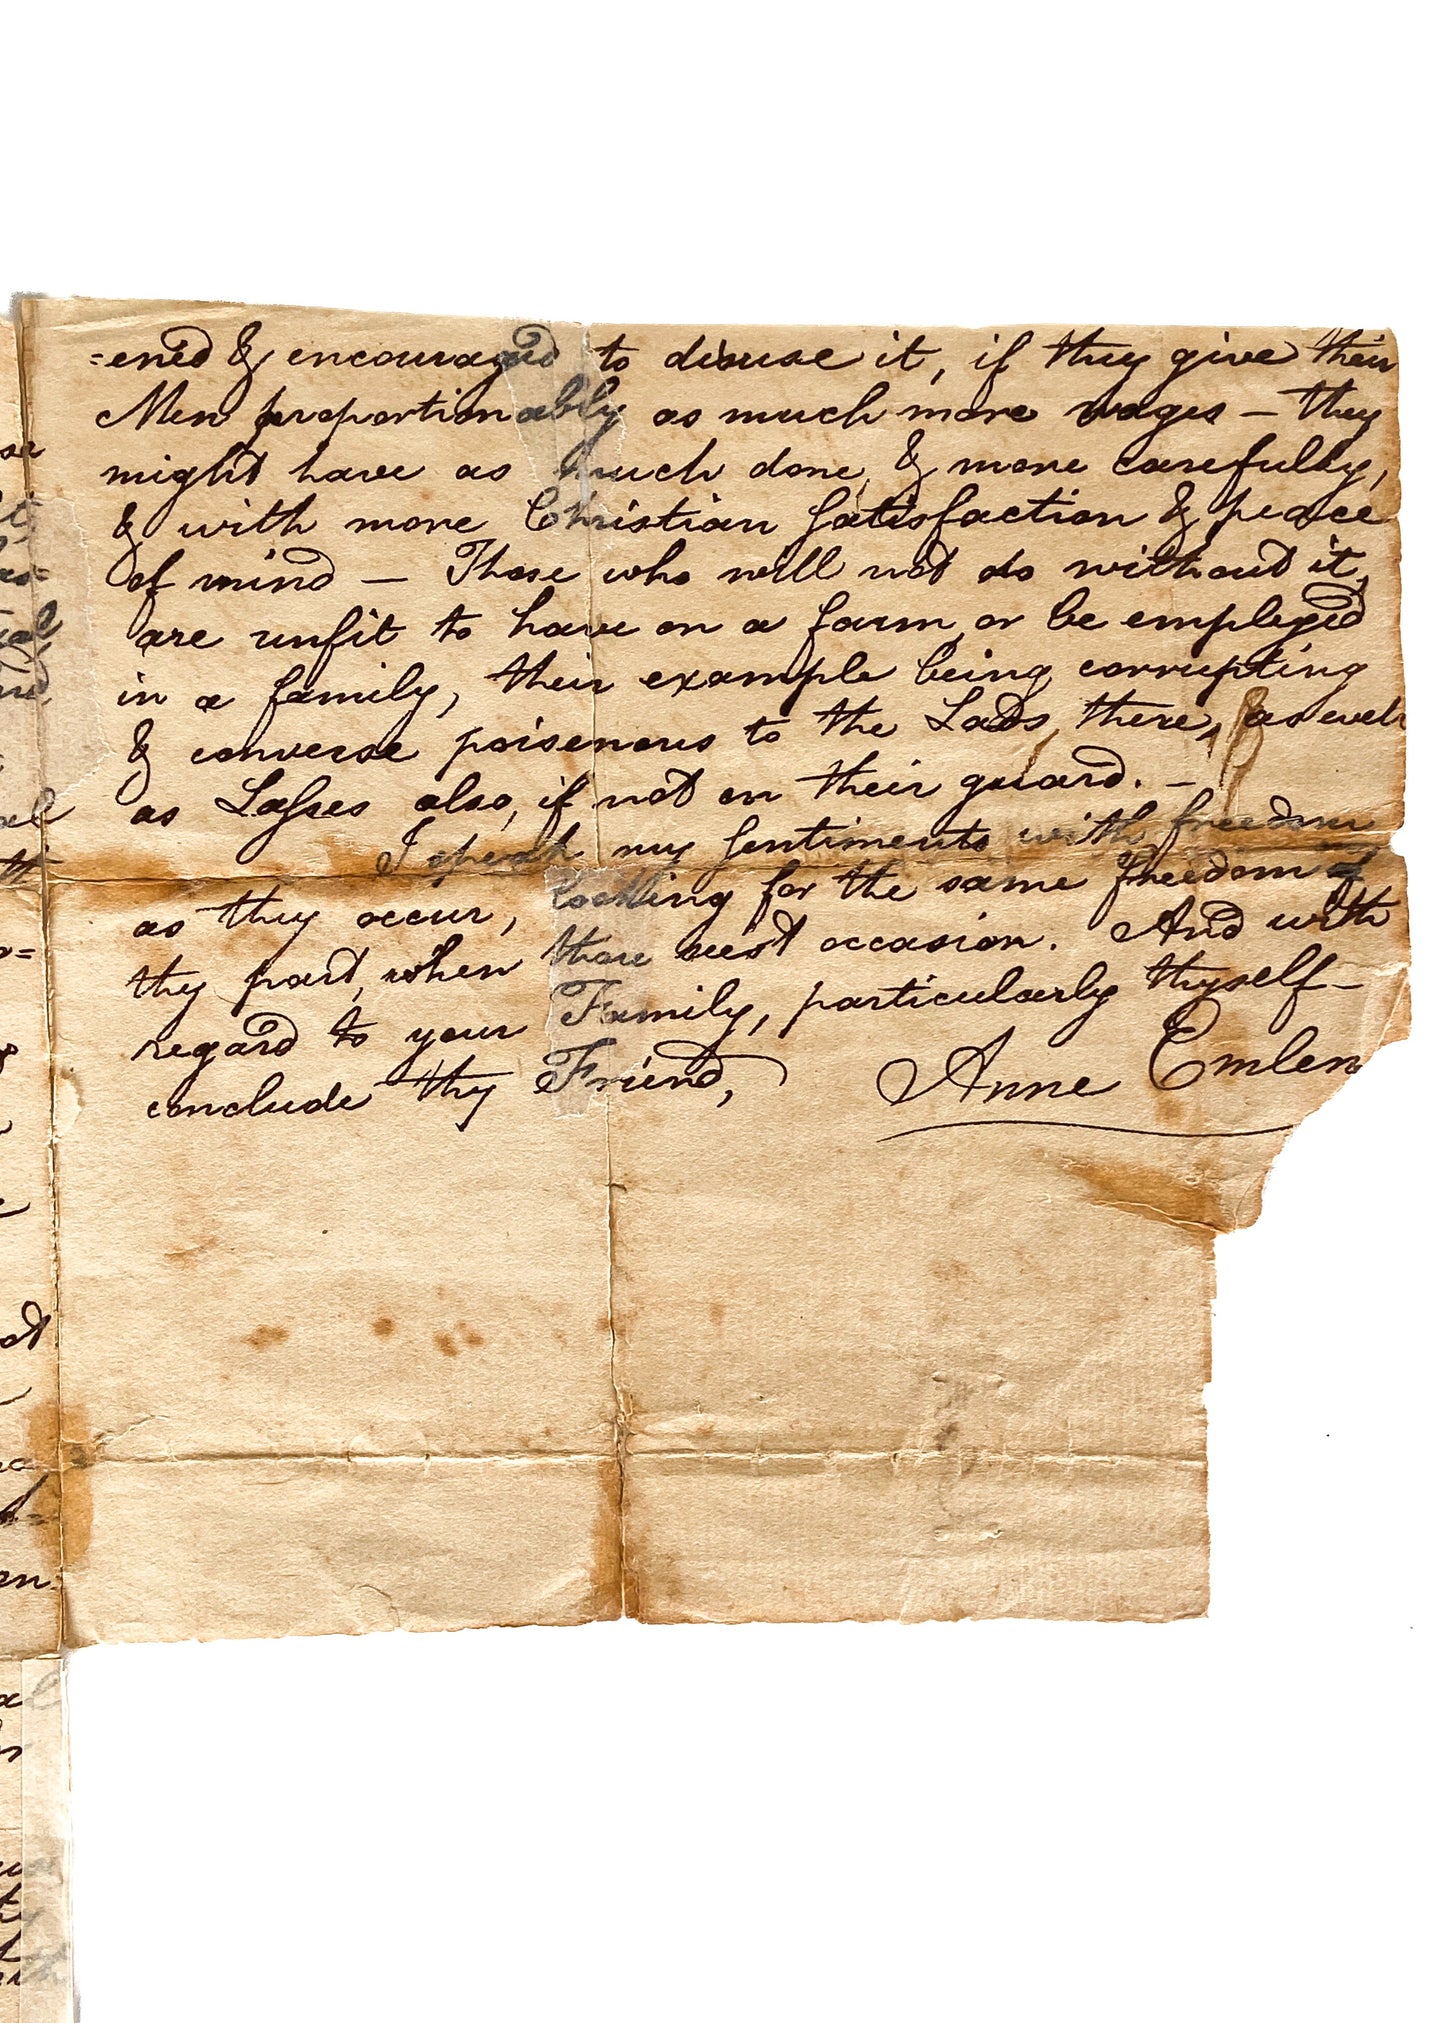 =ened & encouraged to disuse it, if they give their
Men proportionably as much more wages – they
might have as much done, & more carefully,
& with more Christian satisfaction & peace
of mind – Those who will not do without it,
are unfit to have on a farm, or be employed
in a family, their example being corrupting
& converse poisenous to the Lads there, as well
as Lasses also, if not on their guard. –
I speak my sentiments with freedom
as they occur, looking for the same freedom of
thy part, when thou seest occasion. And with
regard to your Family, particularly thyself –
conclude thy Friend, Anne Emlen